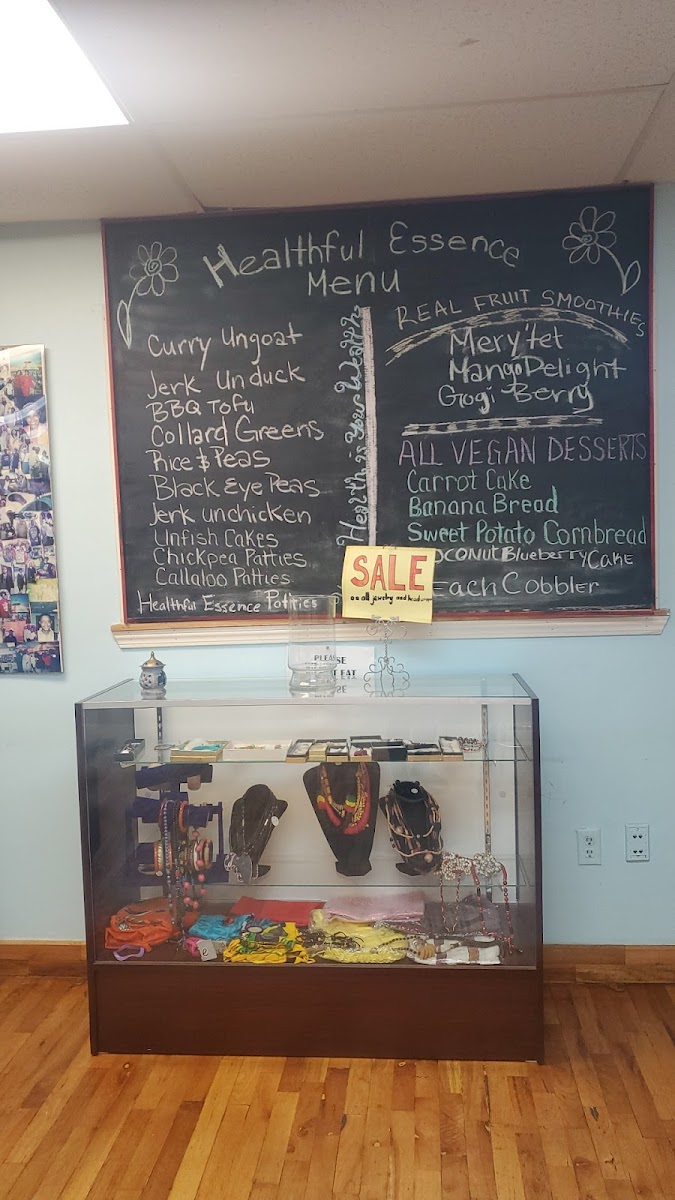 Healthful Essence
Menu
Curry Ungoat
Jerk Unduck
BBQ Tofu
Collard Greens
Rice & Peas
Black Eye Peas
Jerk unchicken
Unfish Cakes
Chickpea Patties
Callaloo Patties
Healthful Essence Patties
Health is Your Wealth
REAL FRUIT SMOOTHIES
Mery'tet
Mango Delight
Gogi-Berry
ALL VEGAN DESSERTS
Carrot Cake
Banana Bread
Sweet Potato Cornbread
OCONUT BlueberryCake
each Cobbler
SALE
on all jewelry and
PLEASE
EAT